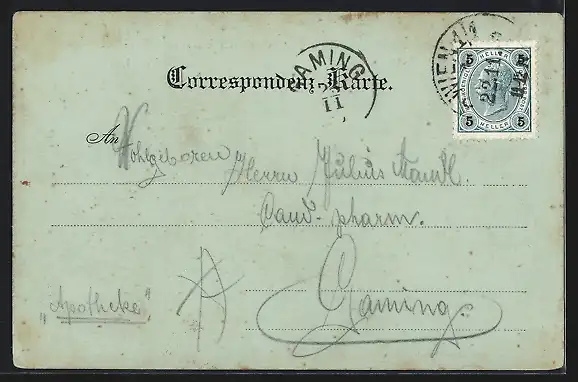 Correspondenz-Karte.
GAMING
II
WIEN 4/1
22.11
5 HELLER 5
5 HELLER 5
An Wohlgeboren Herrn Julius Mandl.
Cand. pharm.
Gaming.
„Apotheke"